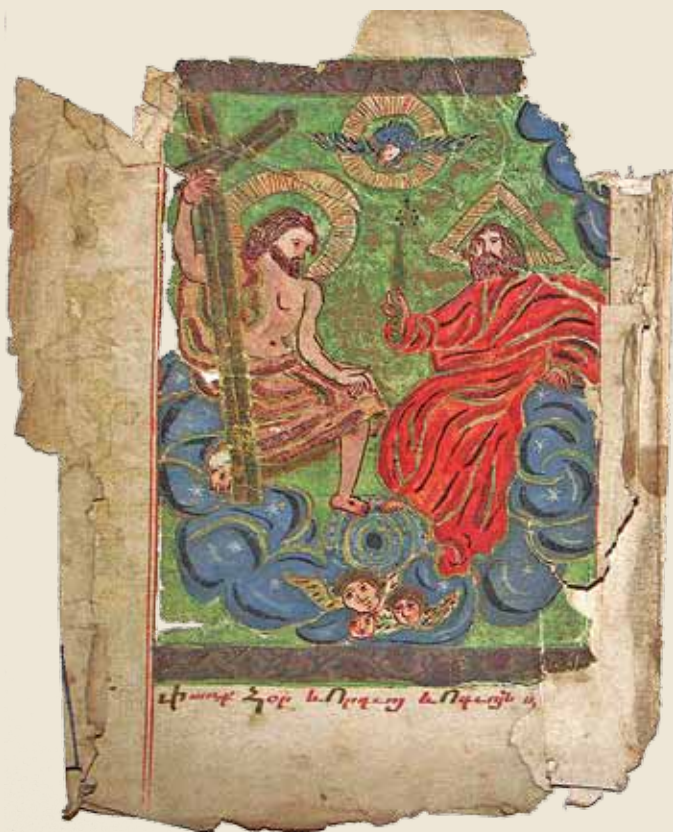 Փառք Հօր և Որդւոյ և Ոգւոյն